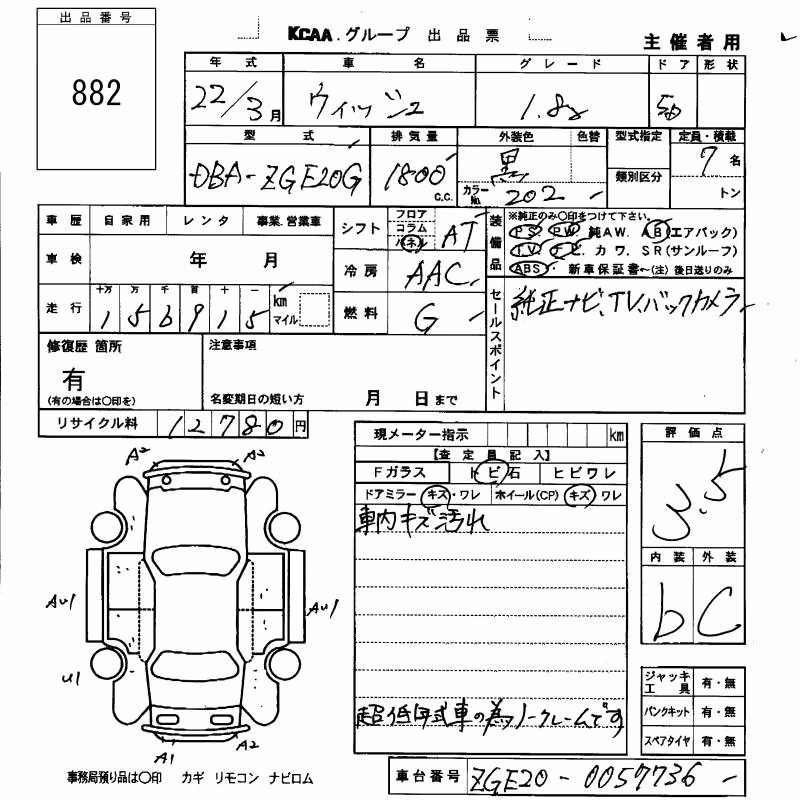 出品番号
882
KCAA.グループ 出品票
主催者用
年式 車名 グレード ドア 形状
22/3月 ウィッシュ 1.8 5
型式 排気量 外装色 色替 型式指定 定員・積載
DBA-ZGE20G 1800 C.C. 黒 7名
カラーNo. 202 類別区分 トン
車歴 自家用 レンタ 事業.営業車
シフト フロア コラム パネル AT
装備品 ※純正のみ○印をつけて下さい。
PS. PW. 純AW. AB(エアバック)
TV. ナビ. カワ. SR(サンルーフ)
ABS. 新車保証書~(注)後日送りのみ
車検 年 月
冷房 AAC
走行 十万 万 千 百 十 一
156915 km マイル
燃料 G
セールスポイント
純正ナビ、TV、バックカメラ
修復歴 箇所
有
(有の場合は○印を)
注意事項
名変期日の短い方 月 日まで
リサイクル料 12780円
現メーター指示 km
【査定員記入】
Fガラス トビ石 ヒビワレ
ドアミラー キズ・ワレ ホイール(CP) キズ ワレ
車内キズ汚れ
超低年式車の為ノークレームです
評価点
3.5
内装 外装
b C
A2 A2
AU1 AU1
U1
A1 A2
ジャッキ工具 有・無
パンクキット 有・無
スペアタイヤ 有・無
事務局預り品は○印 カギ リモコン ナビロム
車台番号 ZGE20-0057736